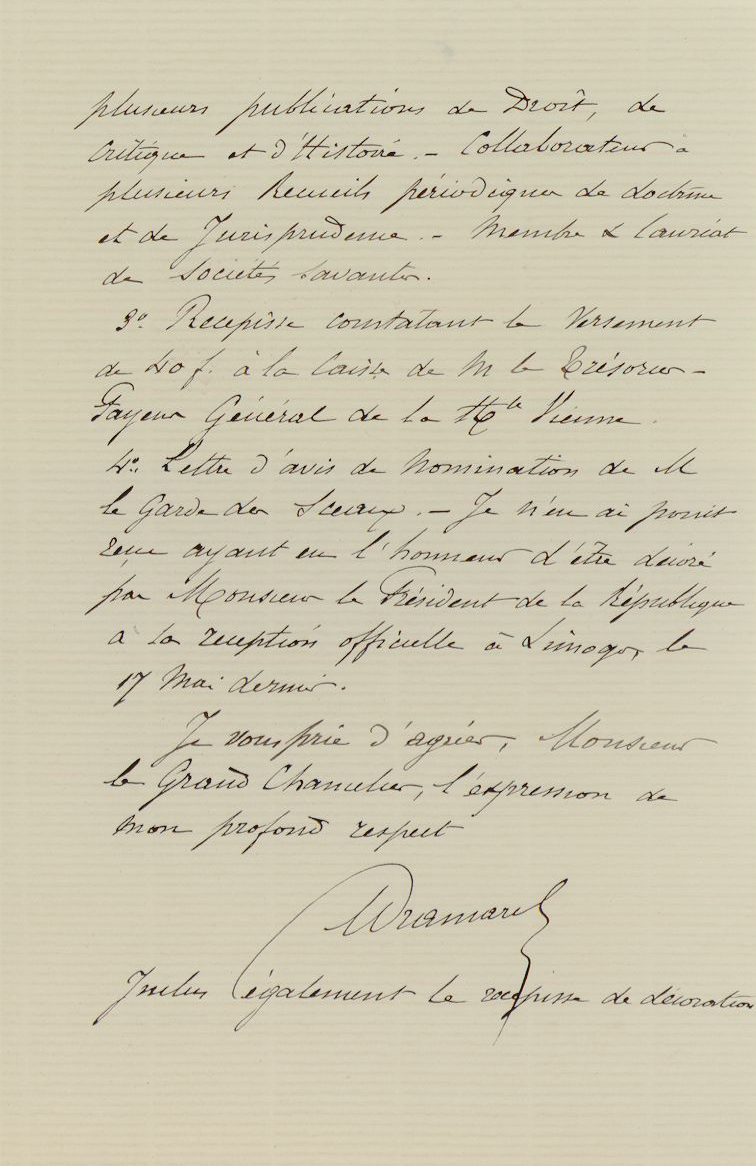 plusieurs publications de Droit, de
Critique et d'Histoire. – Collaborateur à
plusieurs Recueils périodiques de doctrine
et de Jurisprudence. – Membre & lauréat
de Sociétés savantes.
3º Recepisse constatant le Versement
de 40 f. à la Caisse de M le Trésorier –
Payeur Général de la Hte Vienne.
4º. Lettre d'avis de Nomination de M
le Garde des Sceaux. – Je n'en ai point
reçue ayant eu l'honneur d'être décoré
par Monsieur le Président de la République
à la reception officielle à Limoges, le
17 Mai dernier.
Je vous prie d'agréer, Monsieur
le Grand Chancelier, l'expression de
mon profond respect
Dramard
Inclus également le recepisse de décoration